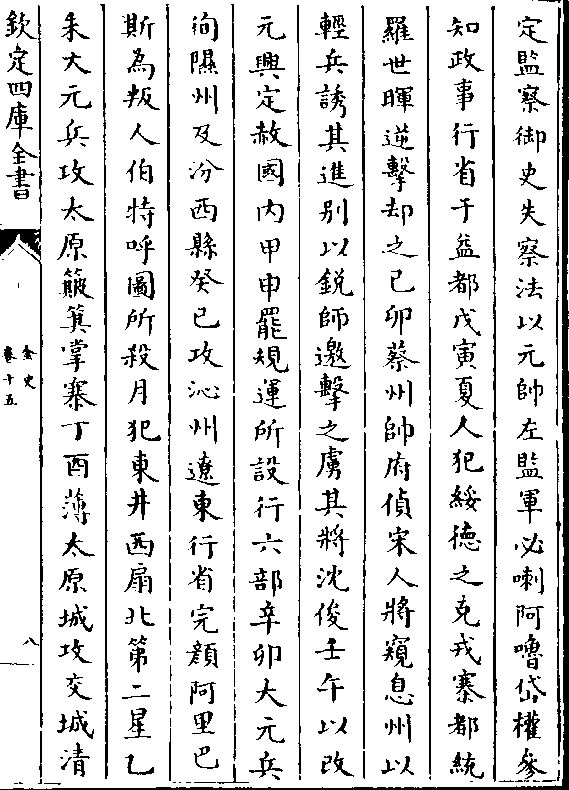 定監察御史失察法以元帥左監軍必喇阿嚕岱權參
知政事行省于益都戊寅夏人犯綏德之克戎寨都統
羅世暉逆擊却之己卯蔡州帥府偵宋人將窺息州以
輕兵誘其進别以銳師邀擊之虜其將沈俊壬午以改
元興定赦國内甲申罷規運所設行六部辛卯大元兵
徇隰州及汾西縣癸巳攻沁州遼東行省完顏阿里巴
斯為叛人伯特呼圖所殺月犯東井西扇北第二星乙
未大元兵攻太原簸箕掌寨丁酉薄太原城攻交城清
欽定四庫全書
金史
卷十五
八